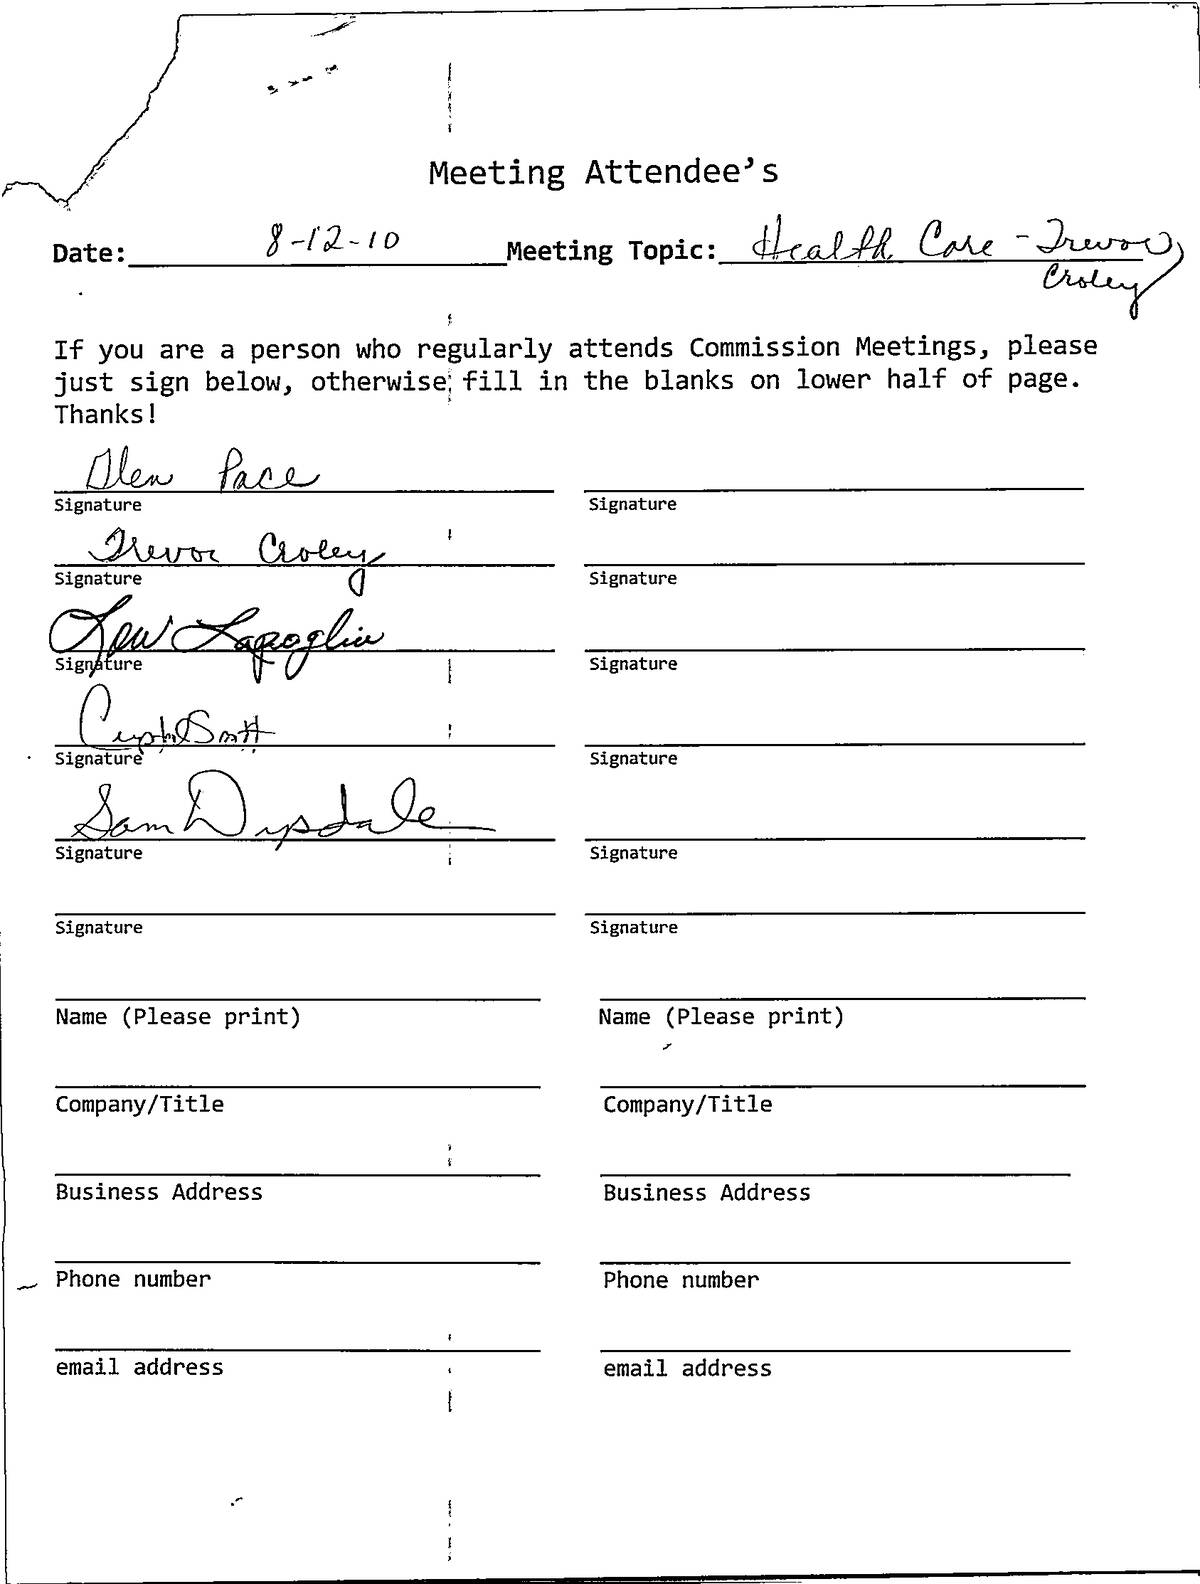 Meeting Attendee's
Date: 8-12-10 Meeting Topic: Health Care - Trevor
Croley
If you are a person who regularly attends Commission Meetings, please
just sign below, otherwise fill in the blanks on lower half of page.
Thanks!
Glen Pace
Signature Signature
Trevor Croley
Signature Signature
Lew Lapoglia
Signature Signature
Crystal Smith
Signature Signature
Sam
Signature Signature
Signature Signature
Name (Please print) Name (Please print)
Company/Title Company/Title
Business Address Business Address
Phone number Phone number
email address email address